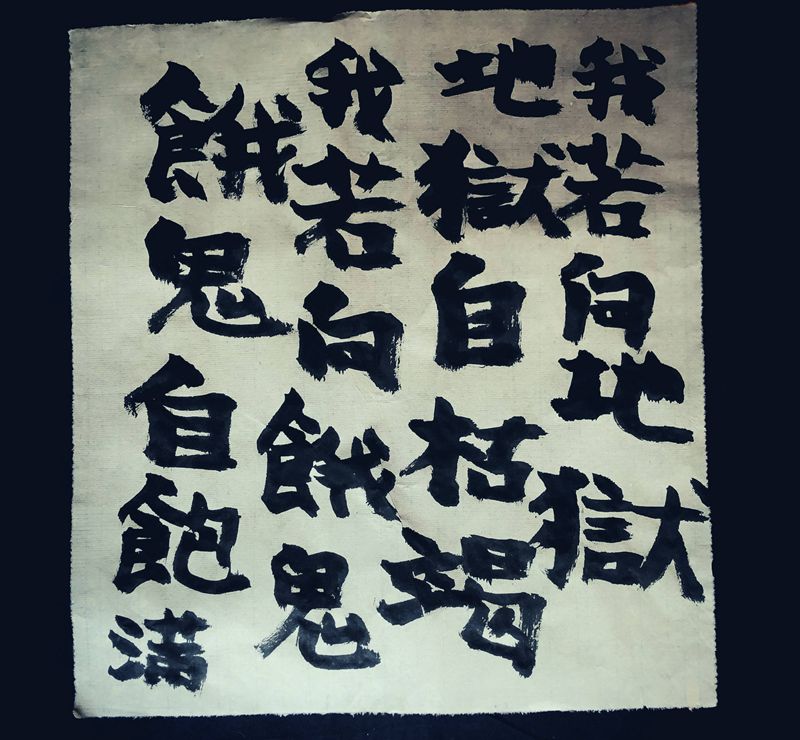 我若向地獄
地獄自枯竭
我若向餓鬼
餓鬼自飽滿